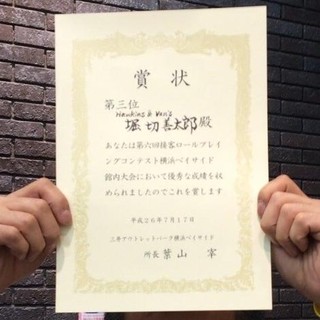 賞状
第三位
Hawkins & Van's
堀切善太郎殿
あなたは第六回接客ロールプレイ
ングコンテスト横浜ベイサイド
館内大会において優秀な成績を収
められましたのでこれを賞します
平成26年7月17日
三井アウトレットパーク横浜ベイサイド
所長 葉山 宰